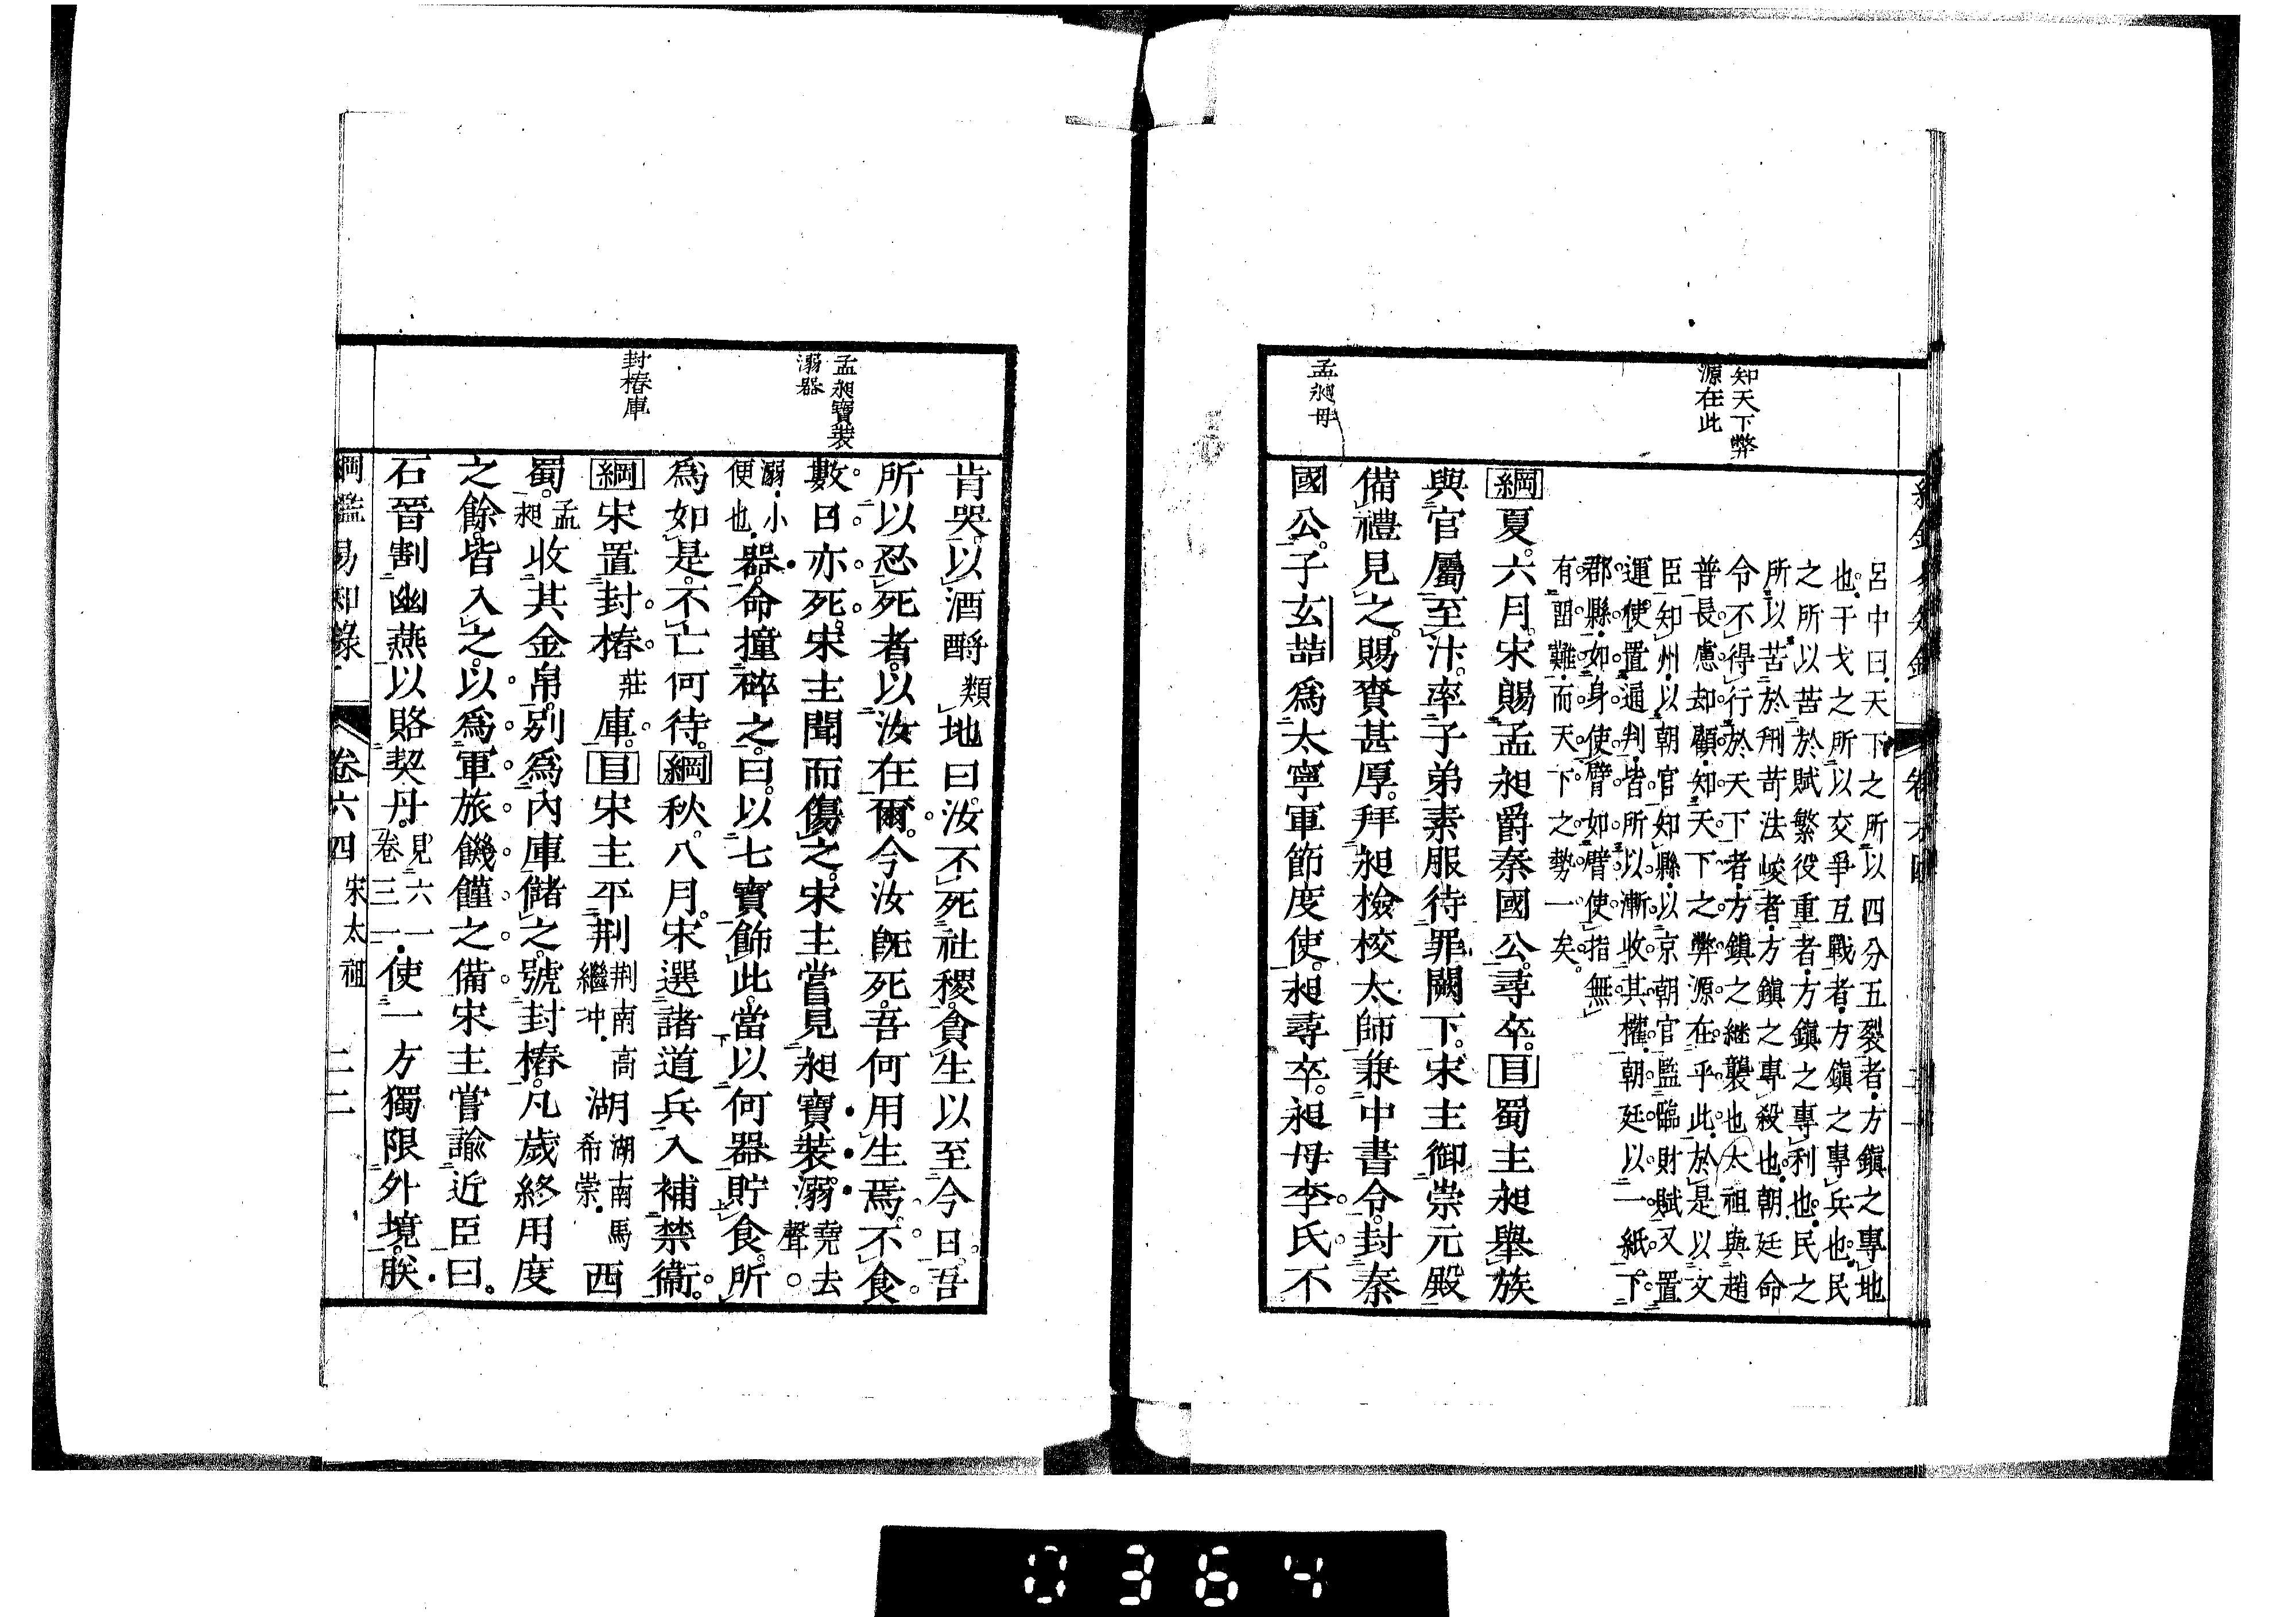 知天下弊
源在此
孟昶母
呂中曰天下之所以四分五裂者方鎮之專地
也干戈之所以交爭互戰者方鎮之專兵也民
之所以苦於賦繁役重者方鎮之專利也民之
所以苦於刑苛法峻者方鎮之專殺也朝廷命
令不得行於天下者方鎮之継襲也太祖與趙
普長慮却顧知天下之弊源在乎此於是以文
臣知州以朝官知縣以京朝官監臨財賦又置
運使置通判皆所以漸收其權朝廷以一紙下
郡縣如身使臂如臂使指無
有留難而天下之勢一矣
綱夏六月宋賜孟昶爵秦國公尋卒目蜀主昶舉族
與官屬至汴率子弟素服待罪闕下宋主御崇元殿
備禮見之賜賚甚厚拜昶檢校太師兼中書令封秦
國公子玄喆爲太寧軍節度使昶尋卒昶母李氏不
孟昶寶裝
溺器
封樁庫
肯哭以酒酹類地曰汝不死社稷貪生以至今日吾
所以忍死者以汝在爾今汝旣死吾何用生焉不食
數日亦死宋主聞而傷之宋主嘗見昶寶裝溺堯去聲
溺小便也器命撞碎之曰以七寶飾此當以何器貯食所
爲如是不亡何待綱秋八月宋選諸道兵入補禁衞
綱宋置封樁莊庫目宋主平荆荆南高繼冲湖湖南馬希崇西
蜀孟昶收其金帛別爲內庫儲之號封樁凡歲終用度
之餘皆入之以爲軍旅饑饉之備宋主嘗諭近臣曰
石晉割幽燕以賂契丹見六一卷三一使一方獨限外境朕
綱鑑易知錄 卷六四 宋太祖 二二
0364